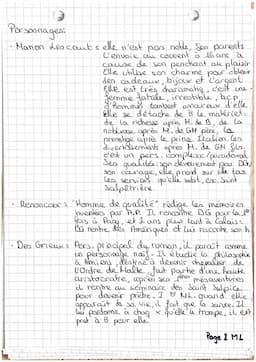 Personnages:
- Manon Lescaut : elle n'est pas noble, ses parents
l'envoie au couvent à 16 ans à
cause de son penchant au plaisir
Elle utilise son charme pour obtenir
des cadeaux, bijoux et l'argent
Elle est très charismatiq, c'est une
femme fatale, irrésistible, bcp
d'hommes tombent amoureux d'elle
Elle se détache de B le
de la richesse après M. de B, de la
noblesse après M. de GM père, la
prestige après le prince Italien les
divertissements après M. de GM fils.
c'est un pers. complexe/paradoxal
ses qualités: son dévouement pour DG,
son courage, elle prend sur elle tous
les services qu'elle ex: Saint
Salpêtrière
- Renoncour : "Homme de qualité" rédige les mémoires
inventés par A.P. Il rencontre DG pour la 1e
fois à Pacy, et 2 ans plus tard à Calais:
la rentre des Amériques et lui raconte son h
- Des Grieux : Pers. principal du roman, il parait comme
un personnage naïf. Il étudie la philosophie
à Amiens, destiné à devenir chevalier de
l'Ordre de Malte, fait partie d'une haute
aristocratie, après ses mésaventures
il rentre au séminaire des Saint Sulpice
pour devenir prêtre. I ML quand elle
apparaît ds sa vie, il fait que la suivre. Il
lui pardonne à chaq x qu'elle le trompe, il est
pret à B pour elle.
Page 1 ML